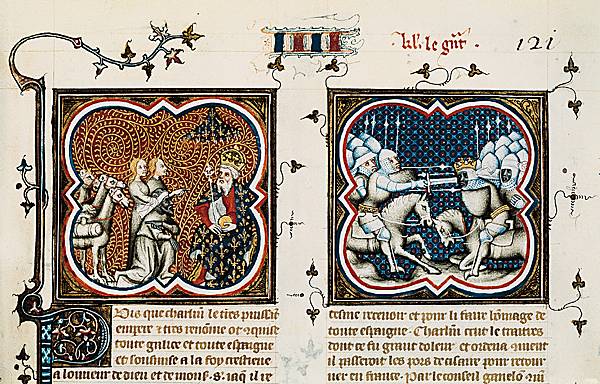 121
puis que charlm le tres puissāt
empire & tres renōme ot cquise
toute galice et toute espaigne
et sousmise a la foy crestiene
a lonneur de dieu et de mons. s. iaq il re
cesme recevoir et pour li faire hōmage de
toute espaigne. Charlm crut le traitres
dont ce fu grant doleur. et ordena cōment
il passeroit les pors de cisaire pour retour
ner en france. Par le conseil ganelon qui